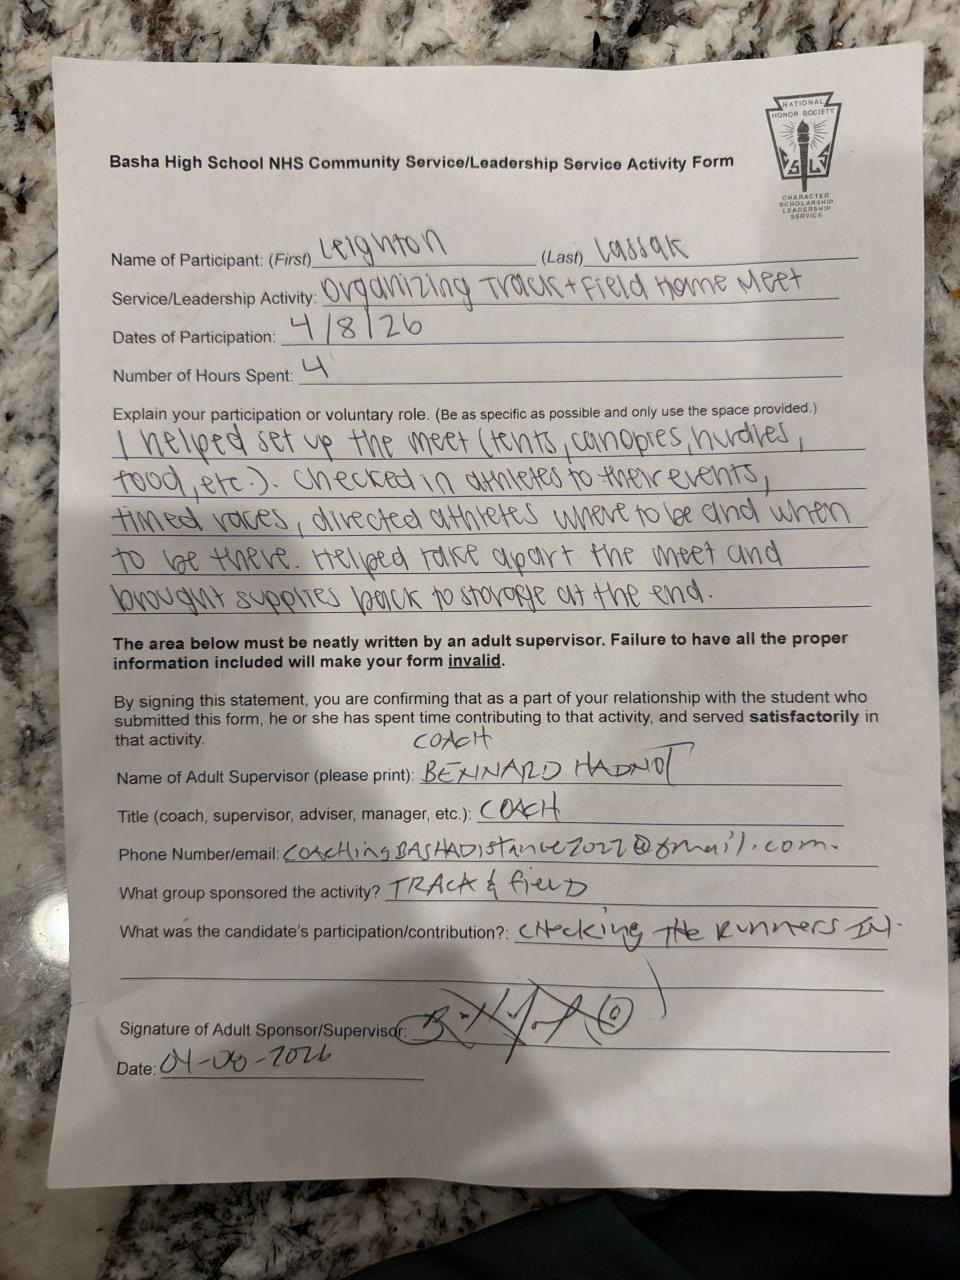 NATIONAL
HONOR SOCIETY
S L
CHARACTER
SCHOLARSHIP
LEADERSHIP
SERVICE
Basha High School NHS Community Service/Leadership Service Activity Form
Name of Participant: (First) Leighton (Last) Lassak
Service/Leadership Activity: Organizing Track + Field Home Meet
Dates of Participation: 4/8/26
Number of Hours Spent: 4
Explain your participation or voluntary role. (Be as specific as possible and only use the space provided.)
I helped set up the meet (tents, canopies, hurdles,
food, etc.). Checked in athletes to their events,
timed races, directed athletes where to be and when
to be there. Helped take apart the meet and
brought supplies back to storage at the end.
The area below must be neatly written by an adult supervisor. Failure to have all the proper
information included will make your form invalid.
By signing this statement, you are confirming that as a part of your relationship with the student who
submitted this form, he or she has spent time contributing to that activity, and served satisfactorily in
that activity.
COACH
Name of Adult Supervisor (please print): BENNARD HADNOT
Title (coach, supervisor, adviser, manager, etc.): COACH
Phone Number/email: COACHingBASHADistance2022@gmail.com.
What group sponsored the activity? TRACK & FIELD
What was the candidate's participation/contribution?: CHecking THe Runners IN.
Signature of Adult Sponsor/Supervisor:
Date: 04-08-2026